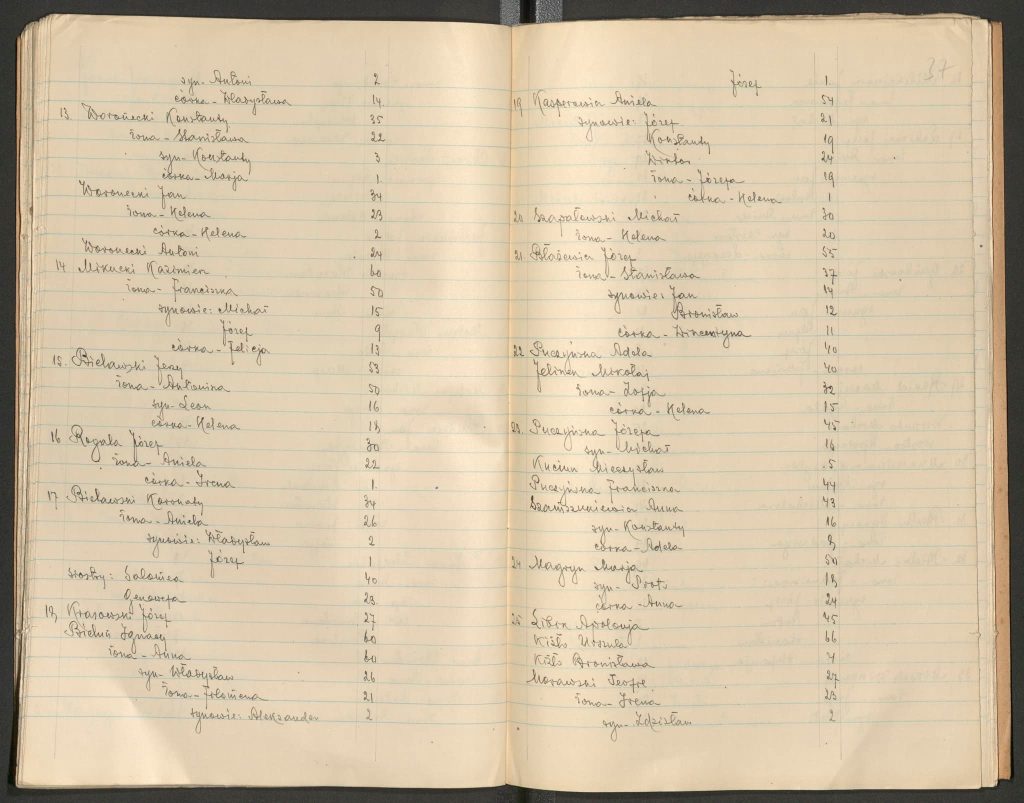 syn - Antoni 2
córka - Władysława 14
13 Woroniecki Konstanty 35
żona - Stanisława 22
syn - Konstanty 3
córka - Marja 1
Woroniecki Jan 34
żona - Helena 23
córka - Helena 2
Woroniecki Antoni 24
14 Mikucki Kazimierz 60
żona - Franciszka 50
synowie: Michał 15
Józef 9
córka - Felicja 13
15. Bielawski Jerzy 53
żona - Antonina 50
syn - Leon 16
córka - Helena 18
16 Rogala Józef 30
żona - Aniela 22
córka - Irena 1
17 Bielawski Koronaty 34
żona - Aniela 26
synowie: Władysław 2
Józef 1
siostry: Salomea 40
Genowefa 23
18 Krasowski Józef 27
Ignacy 60
żona - Anna 60
syn - Władysław 26
żona - Filomena 21
synowie: Aleksander 2
37
Józef 1
19 Kasperowicz Aniela 54
synowie: Józef 21
Konstanty 19
Wiktor 24
żona - Józefa 19
córka - Helena 1
20 Szapałowski Michał 30
żona - Helena 20
21. Błażewicz Józef 55
żona - Stanisława 37
synowie: Jan 14
Bronisław 12
córka - Wincentyna 11
22 Puczyńska Adela 40
Jelinek Mikołaj 40
żona - Zofja 32
córka - Helena 15
23. Puczyńska Józefa 45
syn - Michał 16
Kuciun Mieczysław 5
Puczyńska Franciszka 44
Anna 43
syn - Konstanty 16
córka - Adela 8
24 Magryn Marja 50
syn - Piotr 18
córka - Anna 24
25 Apolonja 45
Urszula 66
Bronisława
Morawski Teofil 27
żona - Irena 23
syn - Zdzisław 2